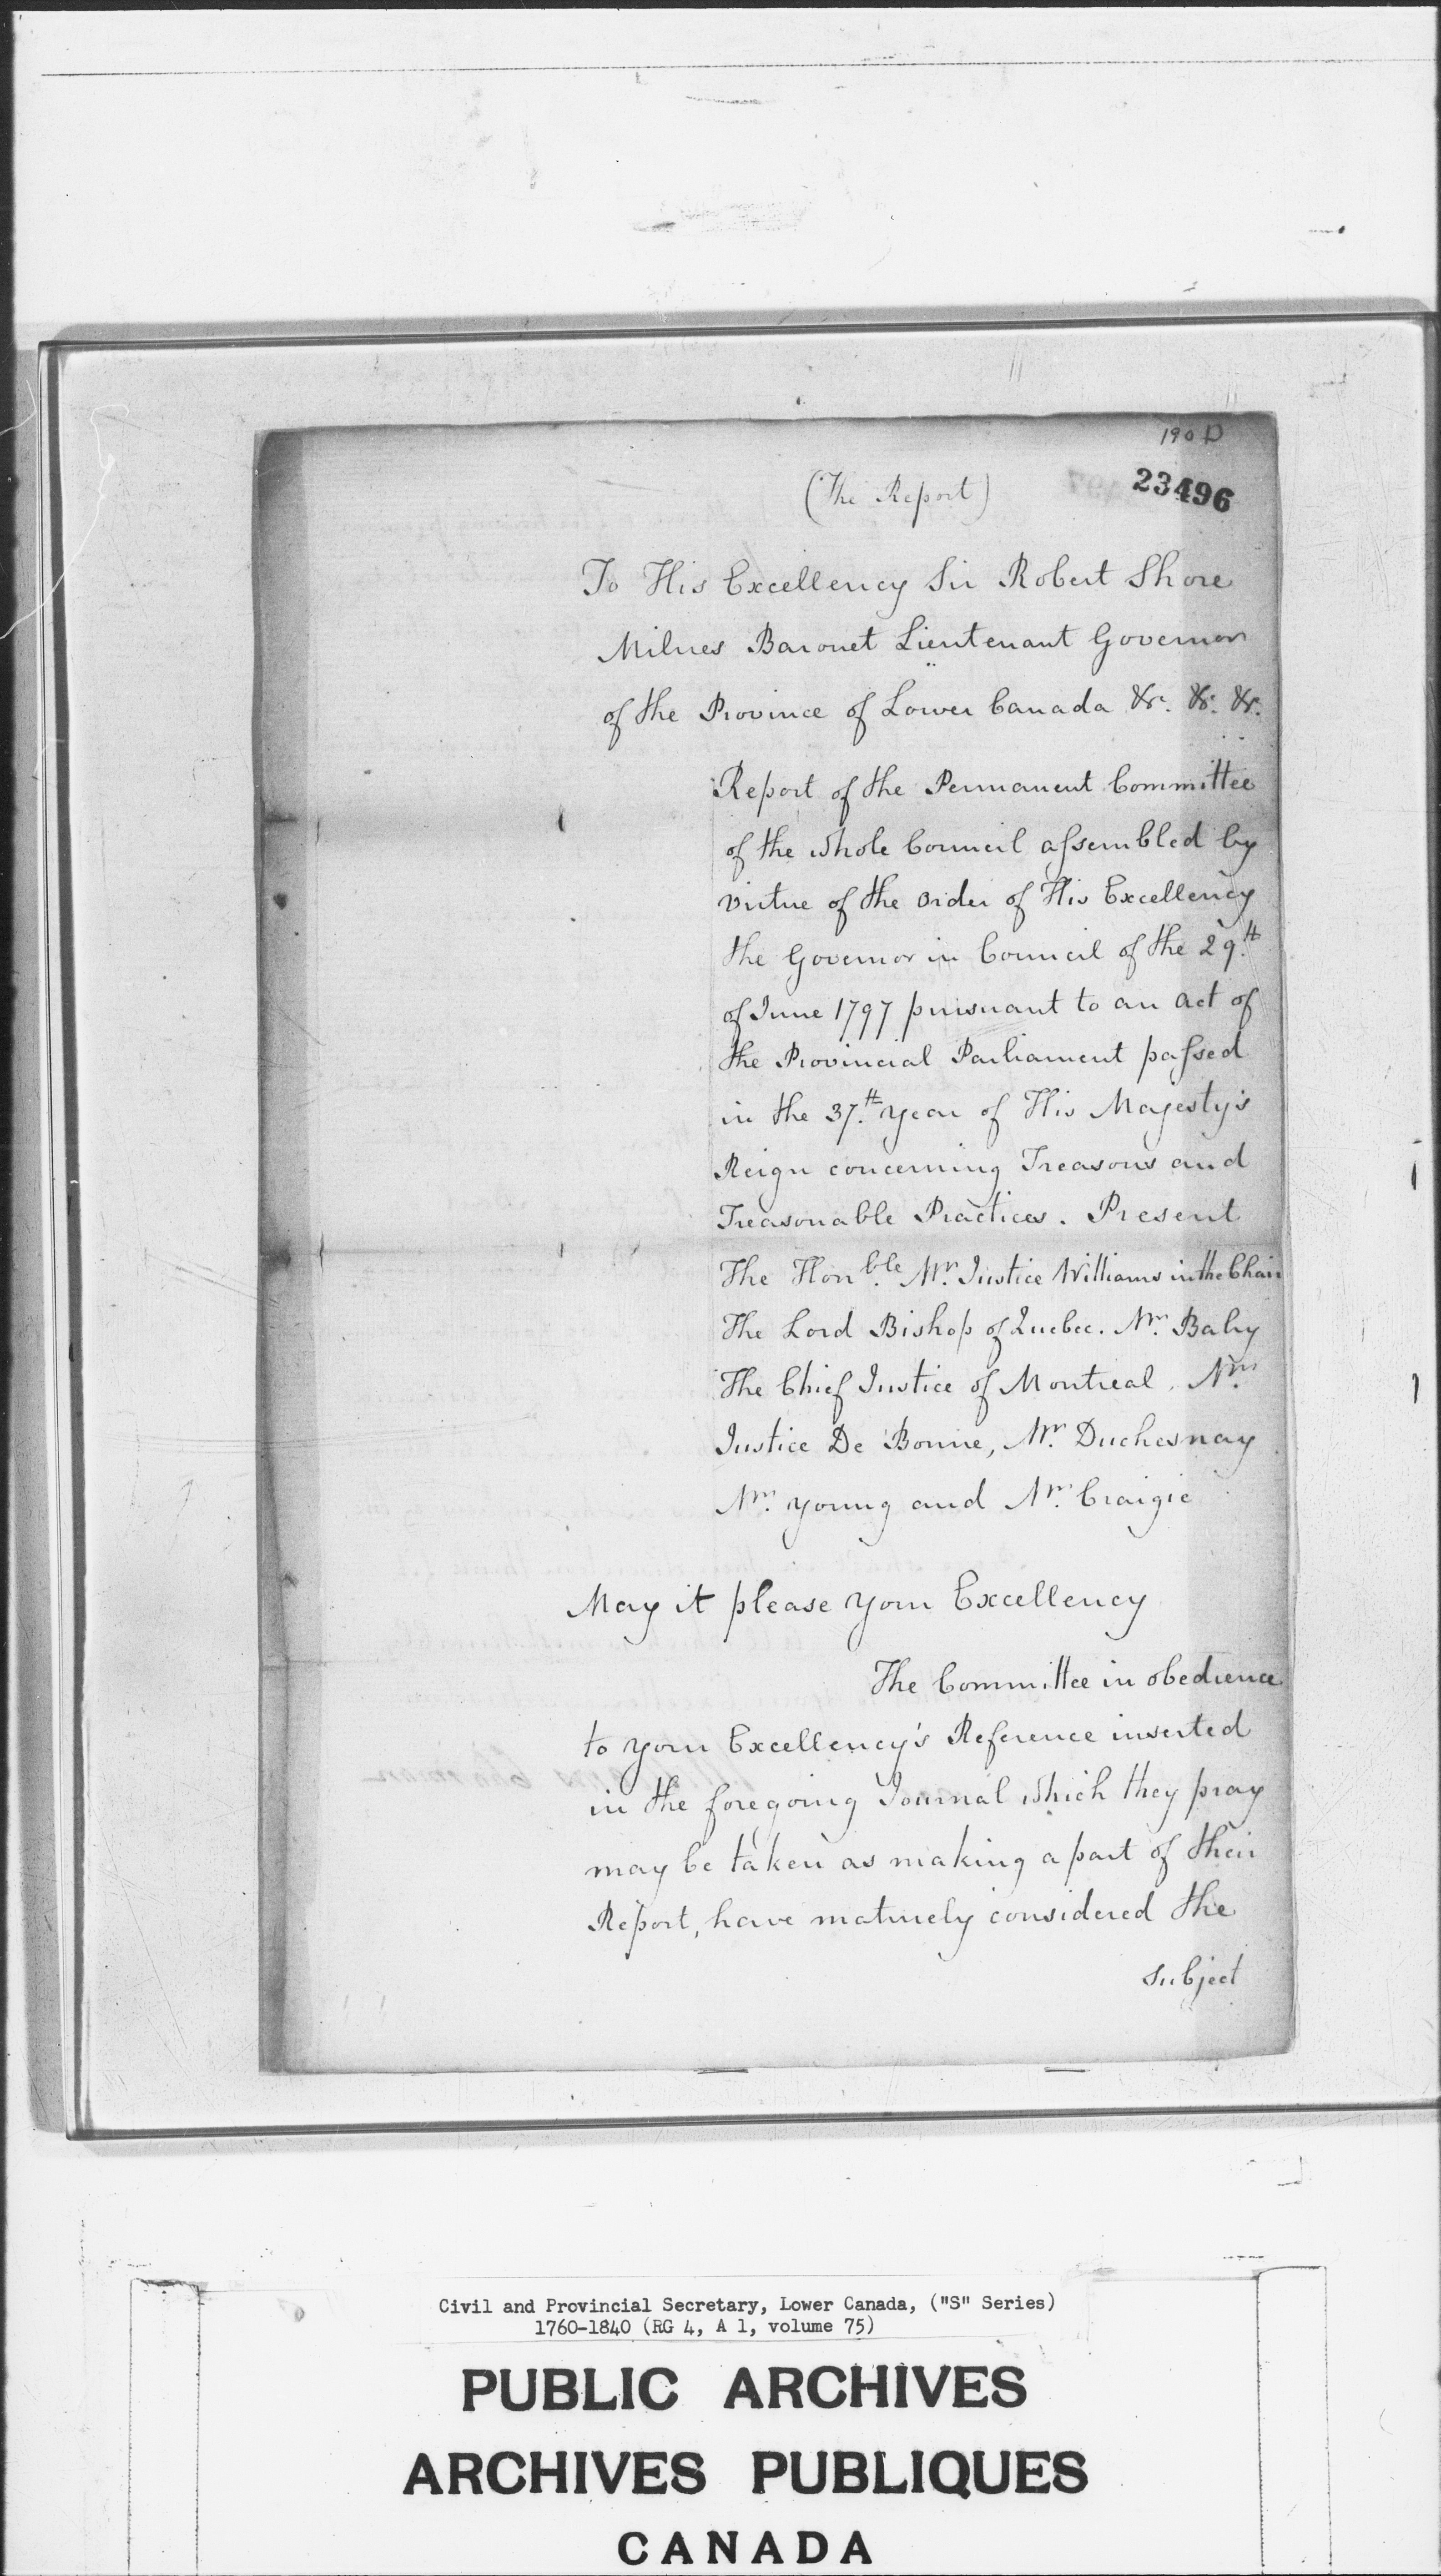 190 D
23496
(The Report)
To His Excellency Sir Robert Shore
Milnes Baronet Lieutenant Governor
of the Province of Lower Canada &c. &c. &c.
Report of the Permanent Committee
of the whole Council assembled by
virtue of the order of His Excellency
the Governor in Council of the 29th
of June 1797 pursuant to an act of
the Provincial Parliament passed
in the 37th year of His Majesty's
Reign concerning Treasons and
Treasonable Practices. Present
The Honble. Mr. Justice Williams in the Chair
The Lord Bishop of Quebec. Mr. Baby
The Chief Justice of Montreal, Mr.
Justice De Bonne, Mr. Duchesnay
Mr. Young and Mr. Craigie
May it please your Excellency
The Committee in obedience
to your Excellency's Reference inserted
in the foregoing Journal which they pray
may be taken as making a part of their
Report, have maturely considered the
subject
Civil and Provincial Secretary, Lower Canada, ("S" Series)
1760-1840 (RG 4, A 1, volume 75)
PUBLIC ARCHIVES
ARCHIVES PUBLIQUES
CANADA